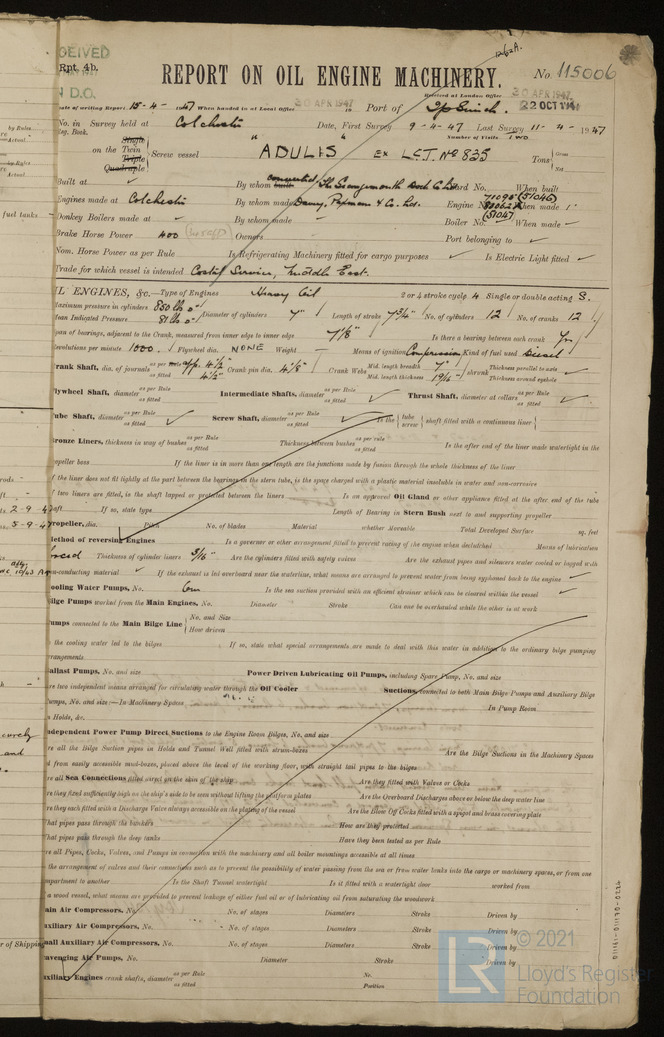 Rpt. 4b.
REPORT ON OIL ENGINE MACHINERY.
No. 115006
Received at London Office
Date of writing Report 15-4-1947 When handed in at Local Office 30 APR 1947 Port of Ipswich.
22 OCT 1941
No. in Survey held at Colchester Date, First Survey 9-4-47 Last Survey 11-4-1947
Reg. Book. Number of Visits TWO
Single
on the Twin Screw vessel "ADULIS" EX L.C.T. No 835 Tons Gross
Triple Net
Quadruple
Built at By whom built converted Yard No. When built
Engines made at Colchester By whom made Davey, Paxman & Co. Ltd. Engine No. When made
Donkey Boilers made at By whom made Boiler No. (51047) When made
Brake Horse Power 400 Owners Port belonging to
Nom. Horse Power as per Rule Is Refrigerating Machinery fitted for cargo purposes Is Electric Light fitted
Trade for which vessel is intended Coastal Service, Middle East.
OIL ENGINES, &c.—Type of Engines Heavy Oil 2 or 4 stroke cycle 4 Single or double acting S.
Maximum pressure in cylinders 880 lb Diameter of cylinders 7" Length of stroke 7 3/4" No. of cylinders 12 No. of cranks 12
Mean Indicated Pressure 81 lb
Span of bearings, adjacent to the Crank, measured from inner edge to inner edge 7 1/8" Is there a bearing between each crank Yes
Revolutions per minute 1000. Flywheel dia. NONE Weight Means of ignition Compression Kind of fuel used Diesel
Crank Shaft, dia. of journals as per Rule app. 4 1/2" as fitted 4 1/2" Crank pin dia. 4 1/8" Crank Webs Mid. length breadth 7" Mid. length thickness shrunk Thickness parallel to axis Thickness around eyehole
Flywheel Shaft, diameter as per Rule as fitted Intermediate Shafts, diameter as per Rule as fitted Thrust Shaft, diameter at collars as per Rule as fitted
Tube Shaft, diameter as per Rule as fitted Screw Shaft, diameter as per Rule as fitted Is the tube screw shaft fitted with a continuous liner
Bronze Liners, thickness in way of bushes as per Rule as fitted Thickness between bushes as per rule as fitted Is the after end of the liner made watertight in the
propeller boss If the liner is in more than one length are the junctions made by fusion through the whole thickness of the liner
If the liner does not fit tightly at the part between the bearings in the stern tube, is the space charged with a plastic material insoluble in water and non-corrosive
If two liners are fitted, is the shaft lapped or protected between the liners Is an approved Oil Gland or other appliance fitted at the after end of the tube
shaft If so, state type Length of Bearing in Stern Bush next to and supporting propeller
Propeller, dia. Pitch No. of blades Material whether Moveable Total Developed Surface sq. feet
Method of reversing Engines Is a governor or other arrangement fitted to prevent racing of the engine when declutched Means of lubrication
forced Thickness of cylinder liners 5/16" Are the cylinders fitted with safety valves Are the exhaust pipes and silencers water cooled or lagged with
non-conducting material If the exhaust is led overboard near the waterline, what means are arranged to prevent water being syphoned back to the engine
Cooling Water Pumps, No. One Is the sea suction provided with an efficient strainer which can be cleared within the vessel
Bilge Pumps worked from the Main Engines, No. Diameter Stroke Can one be overhauled while the other is at work
Pumps connected to the Main Bilge Line No. and Size How driven
Is the cooling water led to the bilges If so, state what special arrangements are made to deal with this water in addition to the ordinary bilge pumping
arrangements
Ballast Pumps, No. and size Power Driven Lubricating Oil Pumps, including Spare Pump, No. and size
Are two independent means arranged for circulating water through the Oil Cooler Suctions, connected to both Main Bilge Pumps and Auxiliary Bilge
Pumps, No. and size:—In Machinery Spaces In Pump Room
In Holds, &c.
Independent Power Pump Direct Suctions to the Engine Room Bilges, No. and size
Are all the Bilge Suction pipes in Holds and Tunnel Well fitted with strum-boxes Are the Bilge Suctions in the Machinery Spaces
led from easily accessible mud-boxes, placed above the level of the working floor, with straight tail pipes to the bilges
Are all Sea Connections fitted direct on the skin of the ship Are they fitted with Valves or Cocks
Are they fixed sufficiently high on the ship's side to be seen without lifting the platform plates Are the Overboard Discharges above or below the deep water line
Are they each fitted with a Discharge Valve always accessible on the plating of the vessel Are the Blow Off Cocks fitted with a spigot and brass covering plate
What pipes pass through the bunkers How are they protected
What pipes pass through the deep tanks Have they been tested as per Rule
Are all Pipes, Cocks, Valves, and Pumps in connection with the machinery and all boiler mountings accessible at all times
Is the arrangement of valves and their connections such as to prevent the possibility of water passing from the sea or from water tanks into the cargo or machinery spaces, or from one
compartment to another Is the Shaft Tunnel watertight Is it fitted with a watertight door worked from
If a wood vessel, what means are provided to prevent leakage of either fuel oil or of lubricating oil from saturating the woodwork
Main Air Compressors, No. No. of stages Diameters Stroke Driven by
Auxiliary Air Compressors, No. No. of stages Diameters Stroke Driven by
Small Auxiliary Air Compressors, No. No. of stages Diameters Stroke Driven by
Scavenging Air Pumps, No. Diameter Stroke Driven by
Auxiliary Engines crank shafts, diameter as per Rule as fitted No. Position
© 2021
Lloyd's Register
Foundation